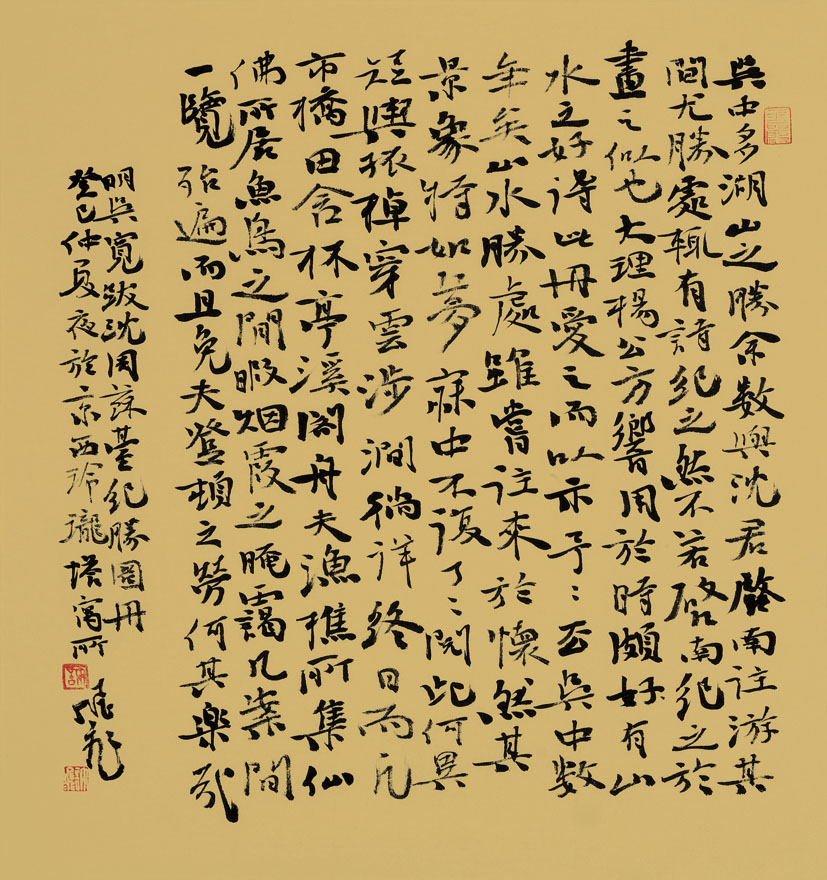 吳中多湖山之勝余數與沈君啓南往游其
間尤勝處輒有詩紀之然不若啓南紀之於
畫之似也大理楊公方嚮用於時頗好有山
水之好得此冊愛之而以示予〻去吳中數
年矣山水勝處雖嘗往來於懷然其
景象特如夢寐中不復了〻閱此何異
輿孤棹穿雲涉澗徜徉終日而凡
市橋田舍林亭溪閣舟夫漁樵所集仙
佛所居魚鳥之閒暇烟霞之晻靄几案間
一覽殆遍而且免夫登頓之勞何其樂哉
明吳寬跋沈周蘇臺紀勝圖冊
癸巳仲夏夜於京西玲瓏塔寓所